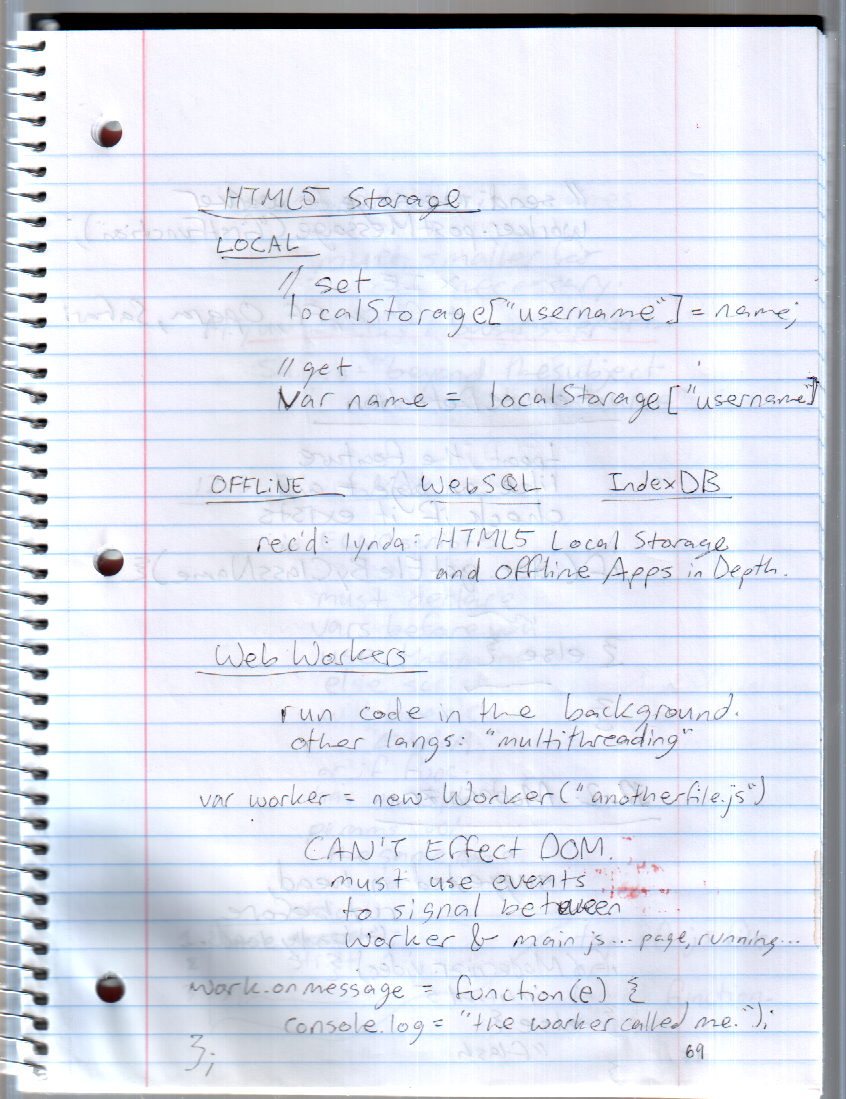 HTML5 Storage
LOCAL
// set
localStorage["username"] = name;
//get
Var name = localStorage["username"]
OFFLINE WebSQL IndexDB
rec'd: lynda: HTML5 Local Storage
and Offline Apps in Depth.
Web Workers
run code in the background.
other langs: "multithreading"
var worker = new Worker("anotherfile.js")
CAN'T Effect DOM.
must use events
to signal between
worker & main js... page, running...
work.onmessage = function(e) {
console.log = "the worker called me.");
};
69